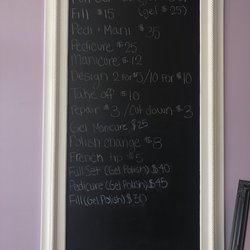 Fill $15 (gel $25)
Pedi + Mani $35
Pedicure $25
Manicure $12
Design 2 for $5/10 for $10
Take off $10
repair $3 / Cut down $3
Gel Manicure $25
Polish change $8
French tip $5
Full Set (Gel Polish) $40
Pedicure (Gel Polish) $45
Fill (Gel Polish) $30